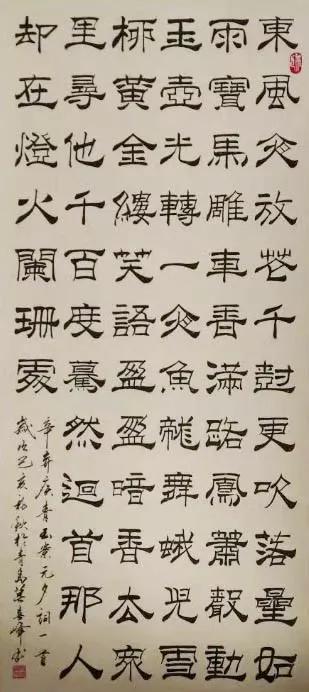 東風夜放花千樹更吹落星如
雨寶馬雕車香滿路鳳簫聲動
玉壺光轉一夜魚龍舞蛾兒雪
柳黃金縷笑語盈盈暗香去衆
里尋他千百度驀然迴首那人
却在燈火闌珊處
辛弃疾青玉案元夕詞一首
歲次己亥初秋於青島春峰書